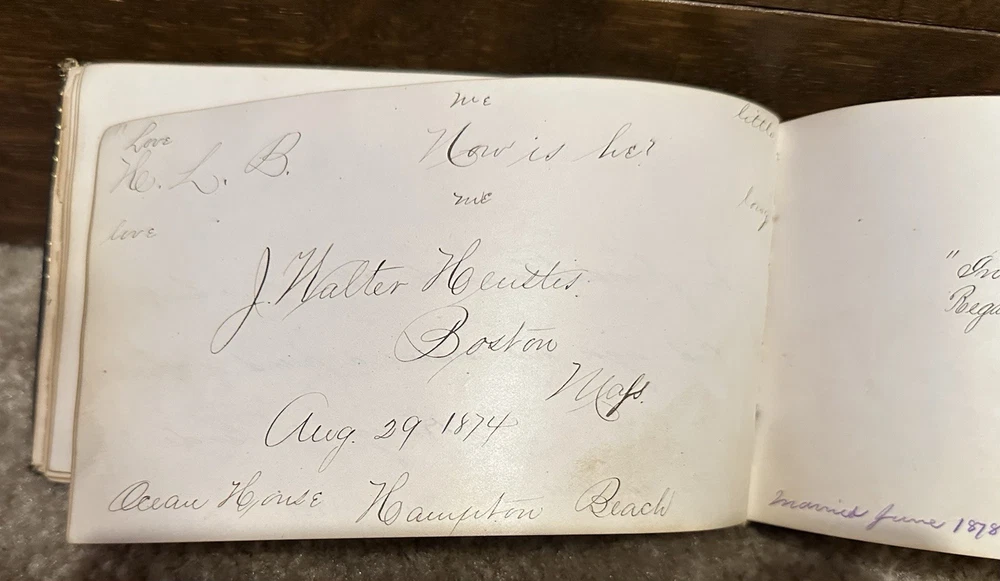 me
little
Love
H. L. B.
How is he?
me
long
love
J. Walter Heustis.
Boston
Mass.
Aug. 29 1874
Ocean House Hampton Beach
"In
Rega
Married June 1878